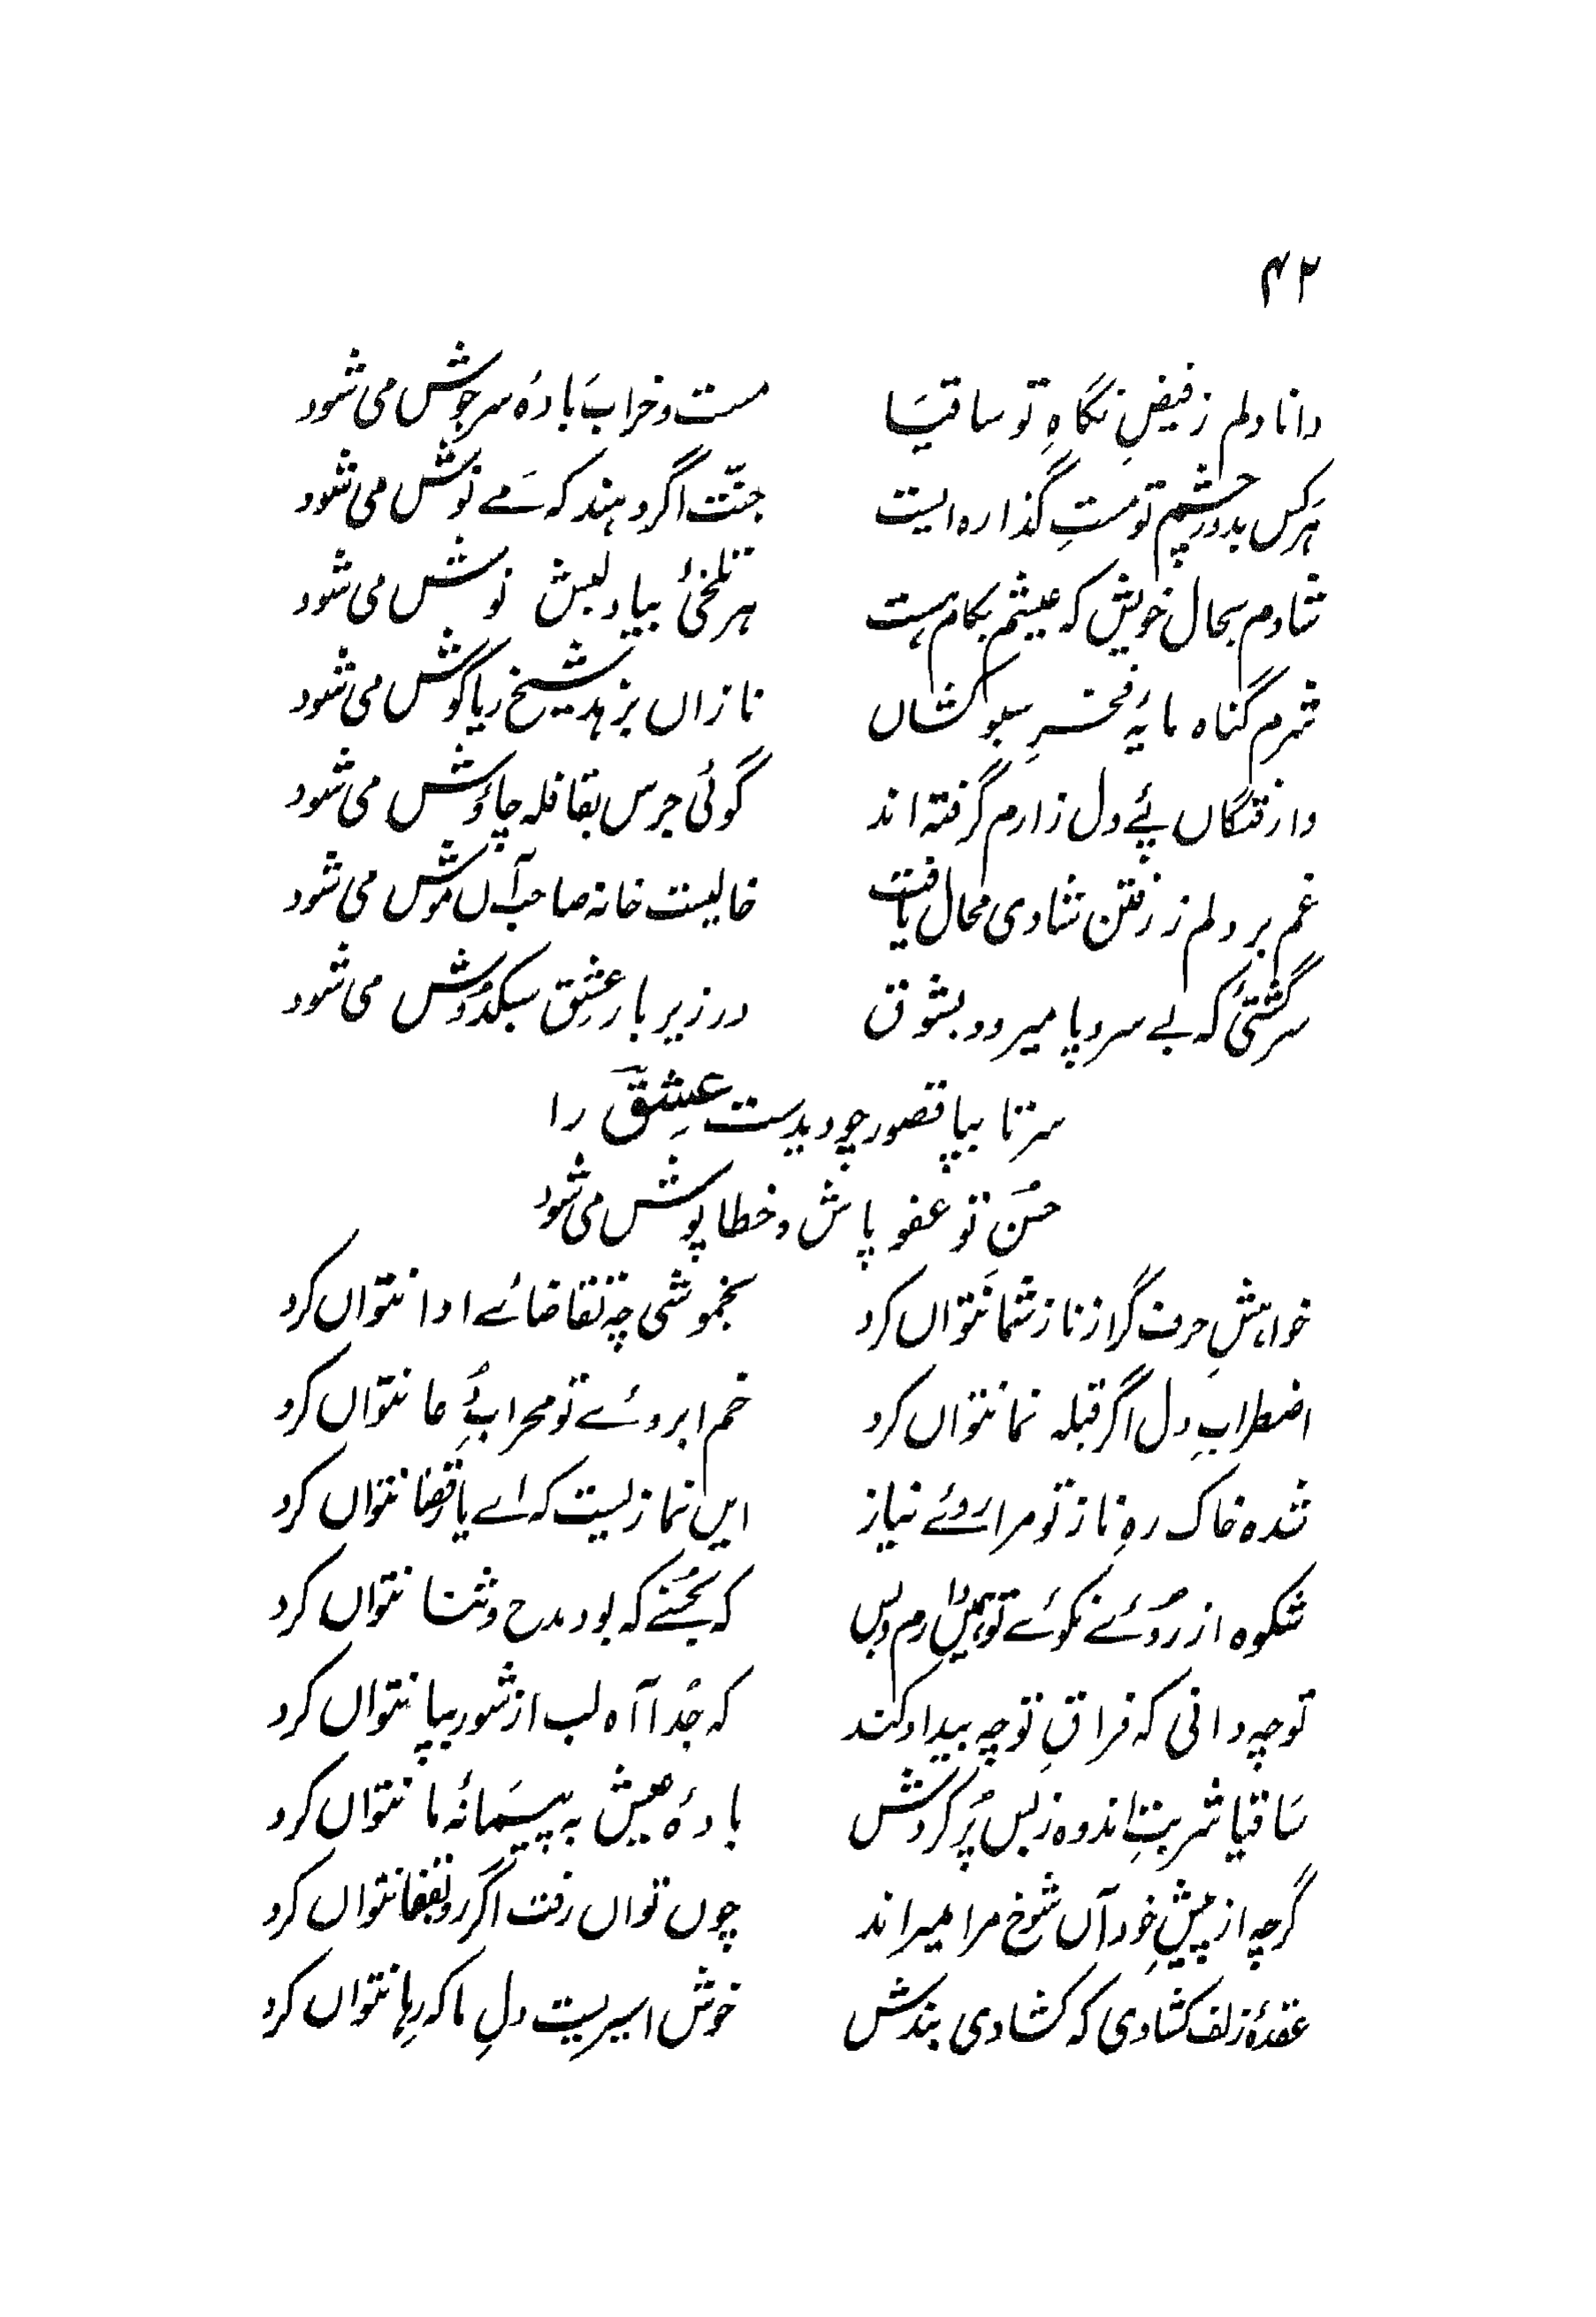 ۴۲
دانا دلم ز فیضِ نگاہِ تو ساقیَا مست و خراب بادۂ سرجوش می شود
ہَرکس بدورِ چشم تو مستِ گذارہ ایست جنّت اگر دہند کہ مَے نوش می شود
شادم بحال خویش کہ عیشم بکام ہست ہر تلخیٔ بیاد لبش نوش می شود
شرمِ گناہ مایۂ فخرِ سبو کشاں نازاں بزہد شیخ ریا گوش می شود
وارفتگاں پئے دل زارم گرفتہ اند گوئی جرس بقافلہ چاؤش می شود
غم بر دلم ز رفتن شادی محال یافت خالیست خانہ صاحب آں موش می شود
سرگشتۂ کہ بے سروپا میرود بشوق در زیر بار عشِق سبکدُوش می شود
سرتا بپا قصور چو دیدست عِشِق را
حُسنِ تو عفو پاش و خطا پوش می شود
خواہشِ حرف گر از ناز شما نَتواں کرد بخموشی چہ تقاضائے ادا نتواں کرد
اضطرابِ دل اگر قبلہ نما نتواں کرد خم ابروئے تو محرابِ دُعا نتواں کرد
شدہ خاک رہِ ناز تو مرا روئے نیاز ایں نمازیست کہ اے یار قضا نتواں کرد
شکوہ از رُوئے نکوئے تو ہمیں دارم و بس کہ بحُسنے کہ بود مدح و ثنا نتواں کرد
تو چہ دانی کہ فراقِ تو چہ بیداد کند کہ جُدا آہ لب از شور بپا نتواں کرد
سَاقیا شربتِ اندوہ ز بس پُر کردش بادۂ عیش بہ پیمَانۂ ما نتواں کرد
گرچہ از پیشِ خود آں شوخ مرا میراند چوں تواں رفت اگر رو بقفا نتواں کرد
عقدۂ زلف کشادی کہ کشادی بندش خوش اسیریست دلِ ما کہ رِہا نتواں کرد